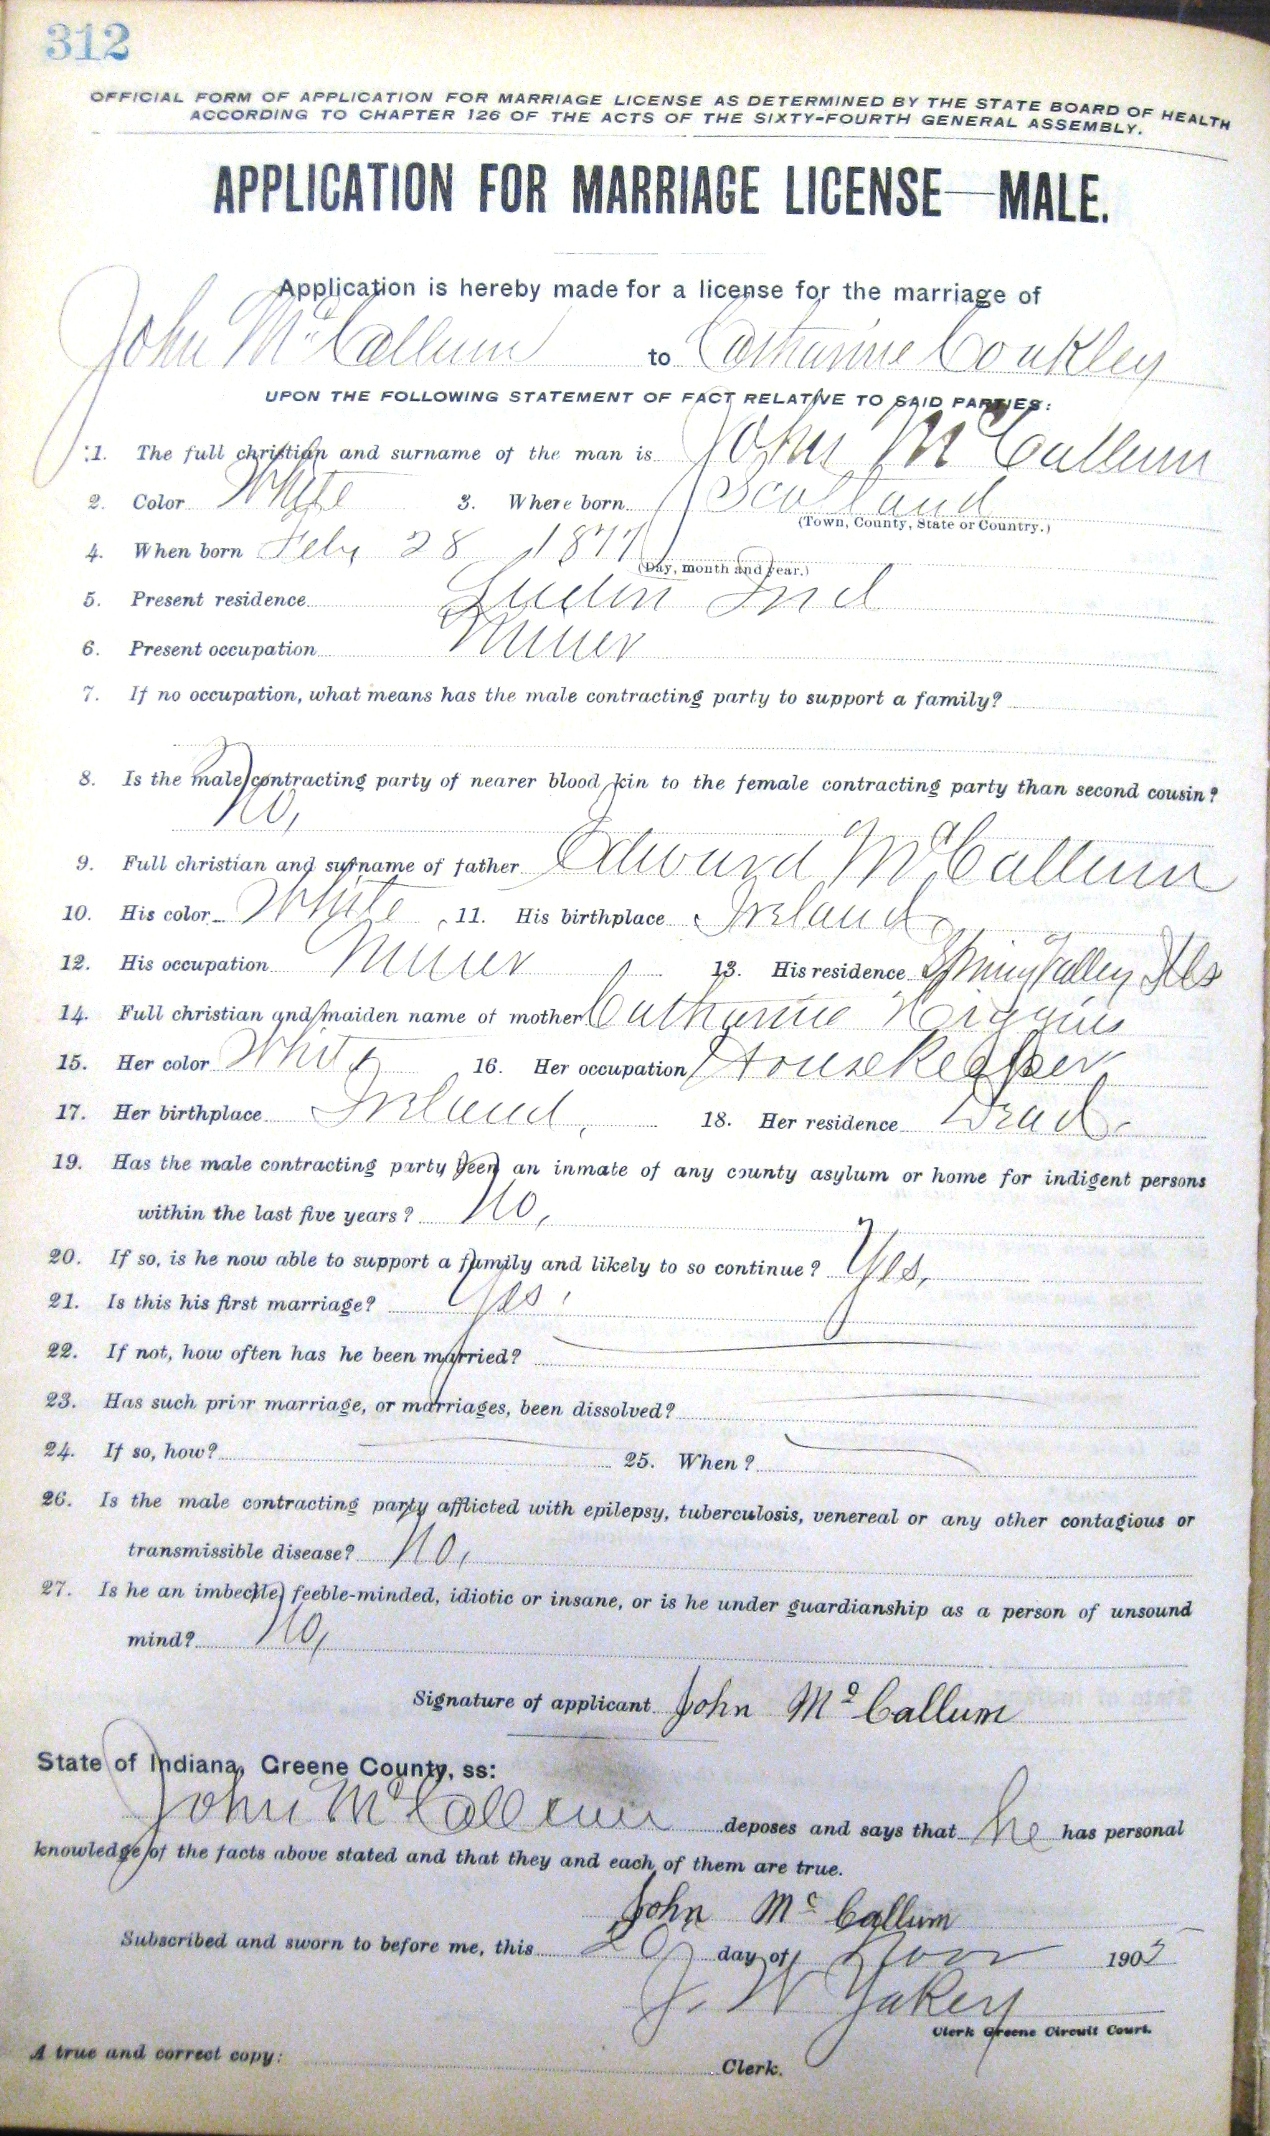 312
OFFICIAL FORM OF APPLICATION FOR MARRIAGE LICENSE AS DETERMINED BY THE STATE BOARD OF HEALTH
ACCORDING TO CHAPTER 126 OF THE ACTS OF THE SIXTY-FOURTH GENERAL ASSEMBLY.
APPLICATION FOR MARRIAGE LICENSE—MALE.
Application is hereby made for a license for the marriage of
John McCallum to Catharine Coakley
UPON THE FOLLOWING STATEMENT OF FACT RELATIVE TO SAID PARTIES:
1. The full christian and surname of the man is John McCallum
2. Color White 3. Where born Scotland
(Town, County, State or Country.)
4. When born Feby 28 1877
(Day, month and year.)
5. Present residence Ind
6. Present occupation Miner
7. If no occupation, what means has the male contracting party to support a family?
8. Is the male contracting party of nearer blood kin to the female contracting party than second cousin?
No,
9. Full christian and surname of father Edward McCallum
10. His color White 11. His birthplace Ireland
12. His occupation Miner 13. His residence Spring Valley Ills
14. Full christian and maiden name of mother Catharine Higgins
15. Her color White 16. Her occupation Housekeeper
17. Her birthplace Ireland, 18. Her residence Dead.
19. Has the male contracting party been an inmate of any county asylum or home for indigent persons
within the last five years? No,
20. If so, is he now able to support a family and likely to so continue? Yes,
21. Is this his first marriage? Yes,
22. If not, how often has he been married?
23. Has such prior marriage, or marriages, been dissolved?
24. If so, how? 25. When?
26. Is the male contracting party afflicted with epilepsy, tuberculosis, venereal or any other contagious or
transmissible disease? No,
27. Is he an imbecile, feeble-minded, idiotic or insane, or is he under guardianship as a person of unsound
mind? No,
Signature of applicant John McCallum
State of Indiana, Greene County, ss:
John McCallum deposes and says that he has personal
knowledge of the facts above stated and that they and each of them are true.
John McCallum
Subscribed and sworn to before me, this 20 day of Nov 1905
J. W Yakey
Clerk Greene Circuit Court.
A true and correct copy: Clerk.